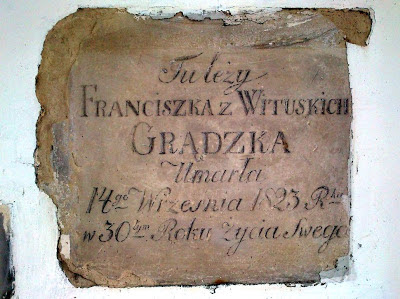 Tu leży
FRANCISZKA z WITUSKICH
GRĄDZKA
Umarła
14go Września 1823 Rku
w 30tym Roku życia Swego